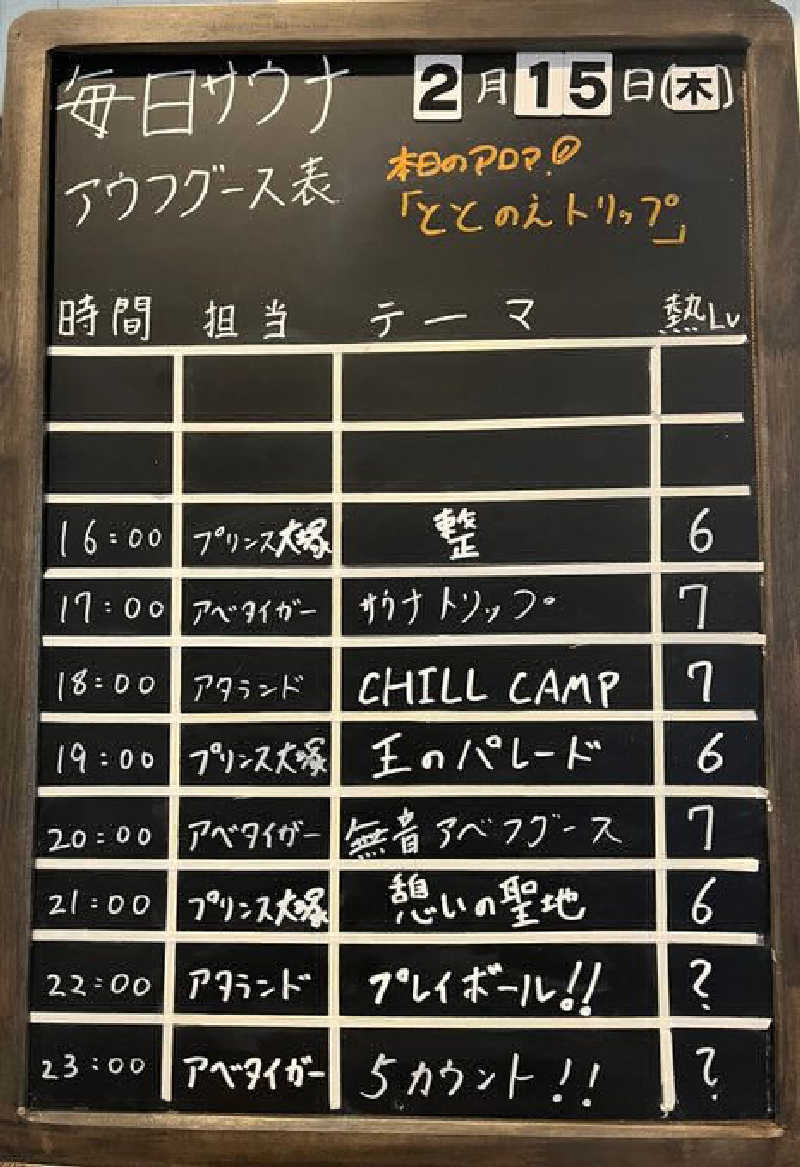 毎日サウナ 2月15日(木)
アウフグース表 本日のアロマ!
「ととのえトリップ」
時間 担当 テーマ 熱Lv
16:00 プリンス大塚 整 6
17:00 アベタイガー サウナトリップ 7
18:00 アタランド CHILL CAMP 7
19:00 プリンス大塚 王のパレード 6
20:00 アベタイガー 無音アベフグース 7
21:00 プリンス大塚 憩いの聖地 6
22:00 アタランド プレイボール!! ?
23:00 アベタイガー 5カウント!! ?